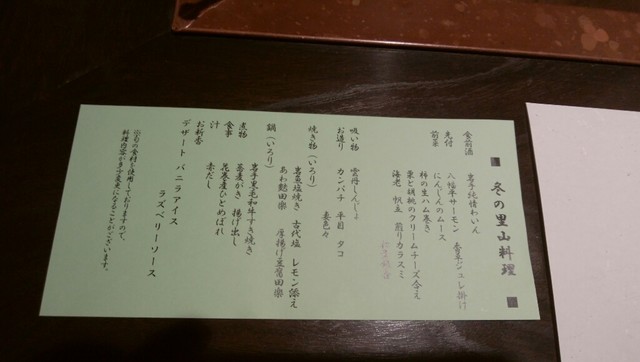 冬の里山料理
食前酒 岩手純情わいん
先付 八幡平サーモン 香草ジュレ掛け
前菜 にんじんのムース
柿の生ハム巻き
栗と胡桃のクリームチーズ合え
海老 帆立 煎りカラスミ
吸い物 雲丹しんじょ
お造り カンパチ 平目 タコ 妻色々
焼き物(いろり)
岩魚塩焼き 古代塩 レモン添え
あわ麩田楽 厚揚げ豆腐田楽
鍋(いろり)
岩手黒毛和牛すき焼き
煮物 蕎麦がき 揚げ出し
食事 花巻産ひとめぼれ
汁 赤だし
お新香
デザート バニラアイス
ラズベリーソース
旬の食材を使用しておりますので、
料理内容が多少変更になることがございます。